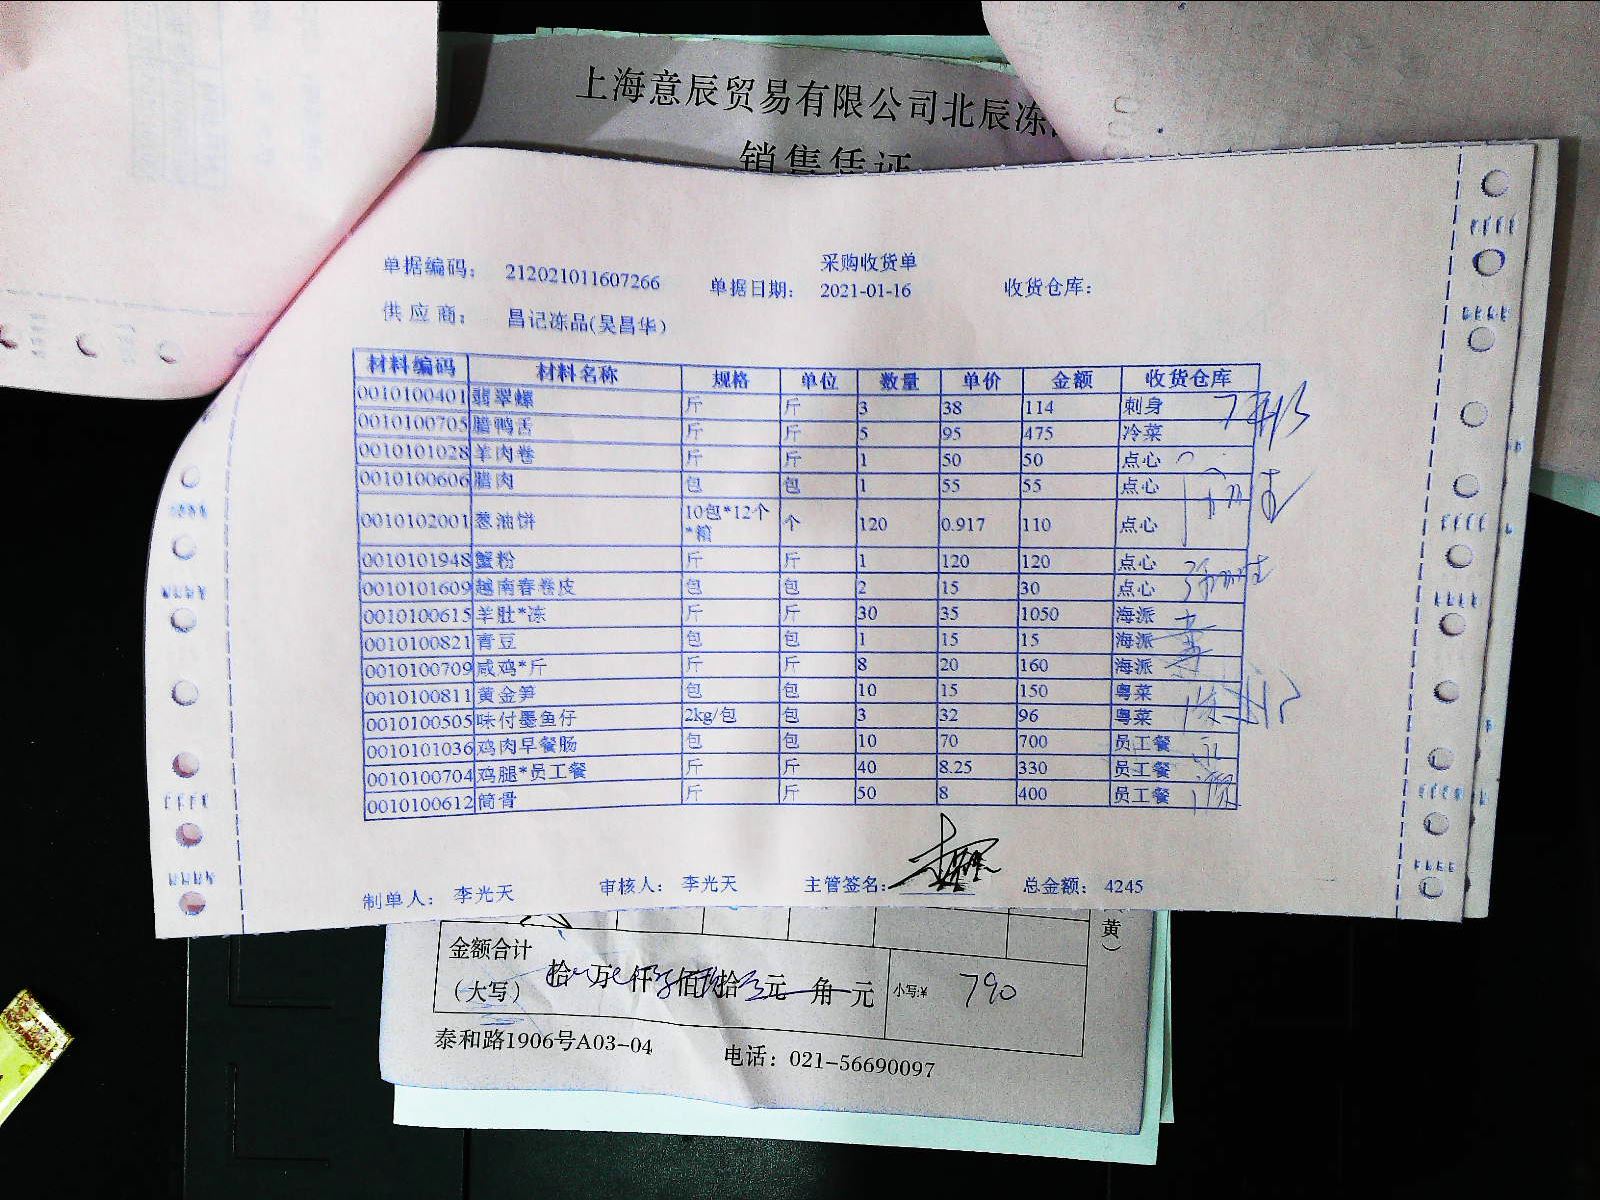 上海意辰贸易有限公司北辰冻
销售凭证
采购收货单
单据编码： 212021011607266 单据日期： 2021-01-16 收货仓库：
供应商： 昌记冻品(吴昌华)
材料编码 材料名称 规格 单位 数量 单价 金额 收货仓库
0010100401 翡翠螺 斤 斤 3 38 114 刺身
0010100705 腊鸭舌 斤 斤 5 95 475 冷菜
0010101028 羊肉卷 斤 斤 1 50 50 点心
0010100606 腊肉 包 包 1 55 55 点心
0010102001 葱油饼 10包*12个*箱 个 120 0.917 110 点心
0010101948 蟹粉 斤 斤 1 120 120 点心
0010101609 越南春卷皮 包 包 2 15 30 点心
0010100615 羊肚*冻 斤 斤 30 35 1050 海派
0010100821 青豆 包 包 1 15 15 海派
0010100709 咸鸡*斤 斤 斤 8 20 160 海派
0010100811 黄金笋 包 包 10 15 150 粤菜
0010100505 味付墨鱼仔 2kg/包 包 3 32 96 粤菜
0010101036 鸡肉早餐肠 包 包 10 70 700 员工餐
0010100704 鸡腿*员工餐 斤 斤 40 8.25 330 员工餐
0010100612 筒骨 斤 斤 50 8 400 员工餐
制单人： 李光天 审核人： 李光天 主管签名： 总金额： 4245
黄）
金额合计
（大写） 拾 万 仟 佰 拾 元 角 元 小写:¥ 790
泰和路1906号A03-04 电话：021-56690097